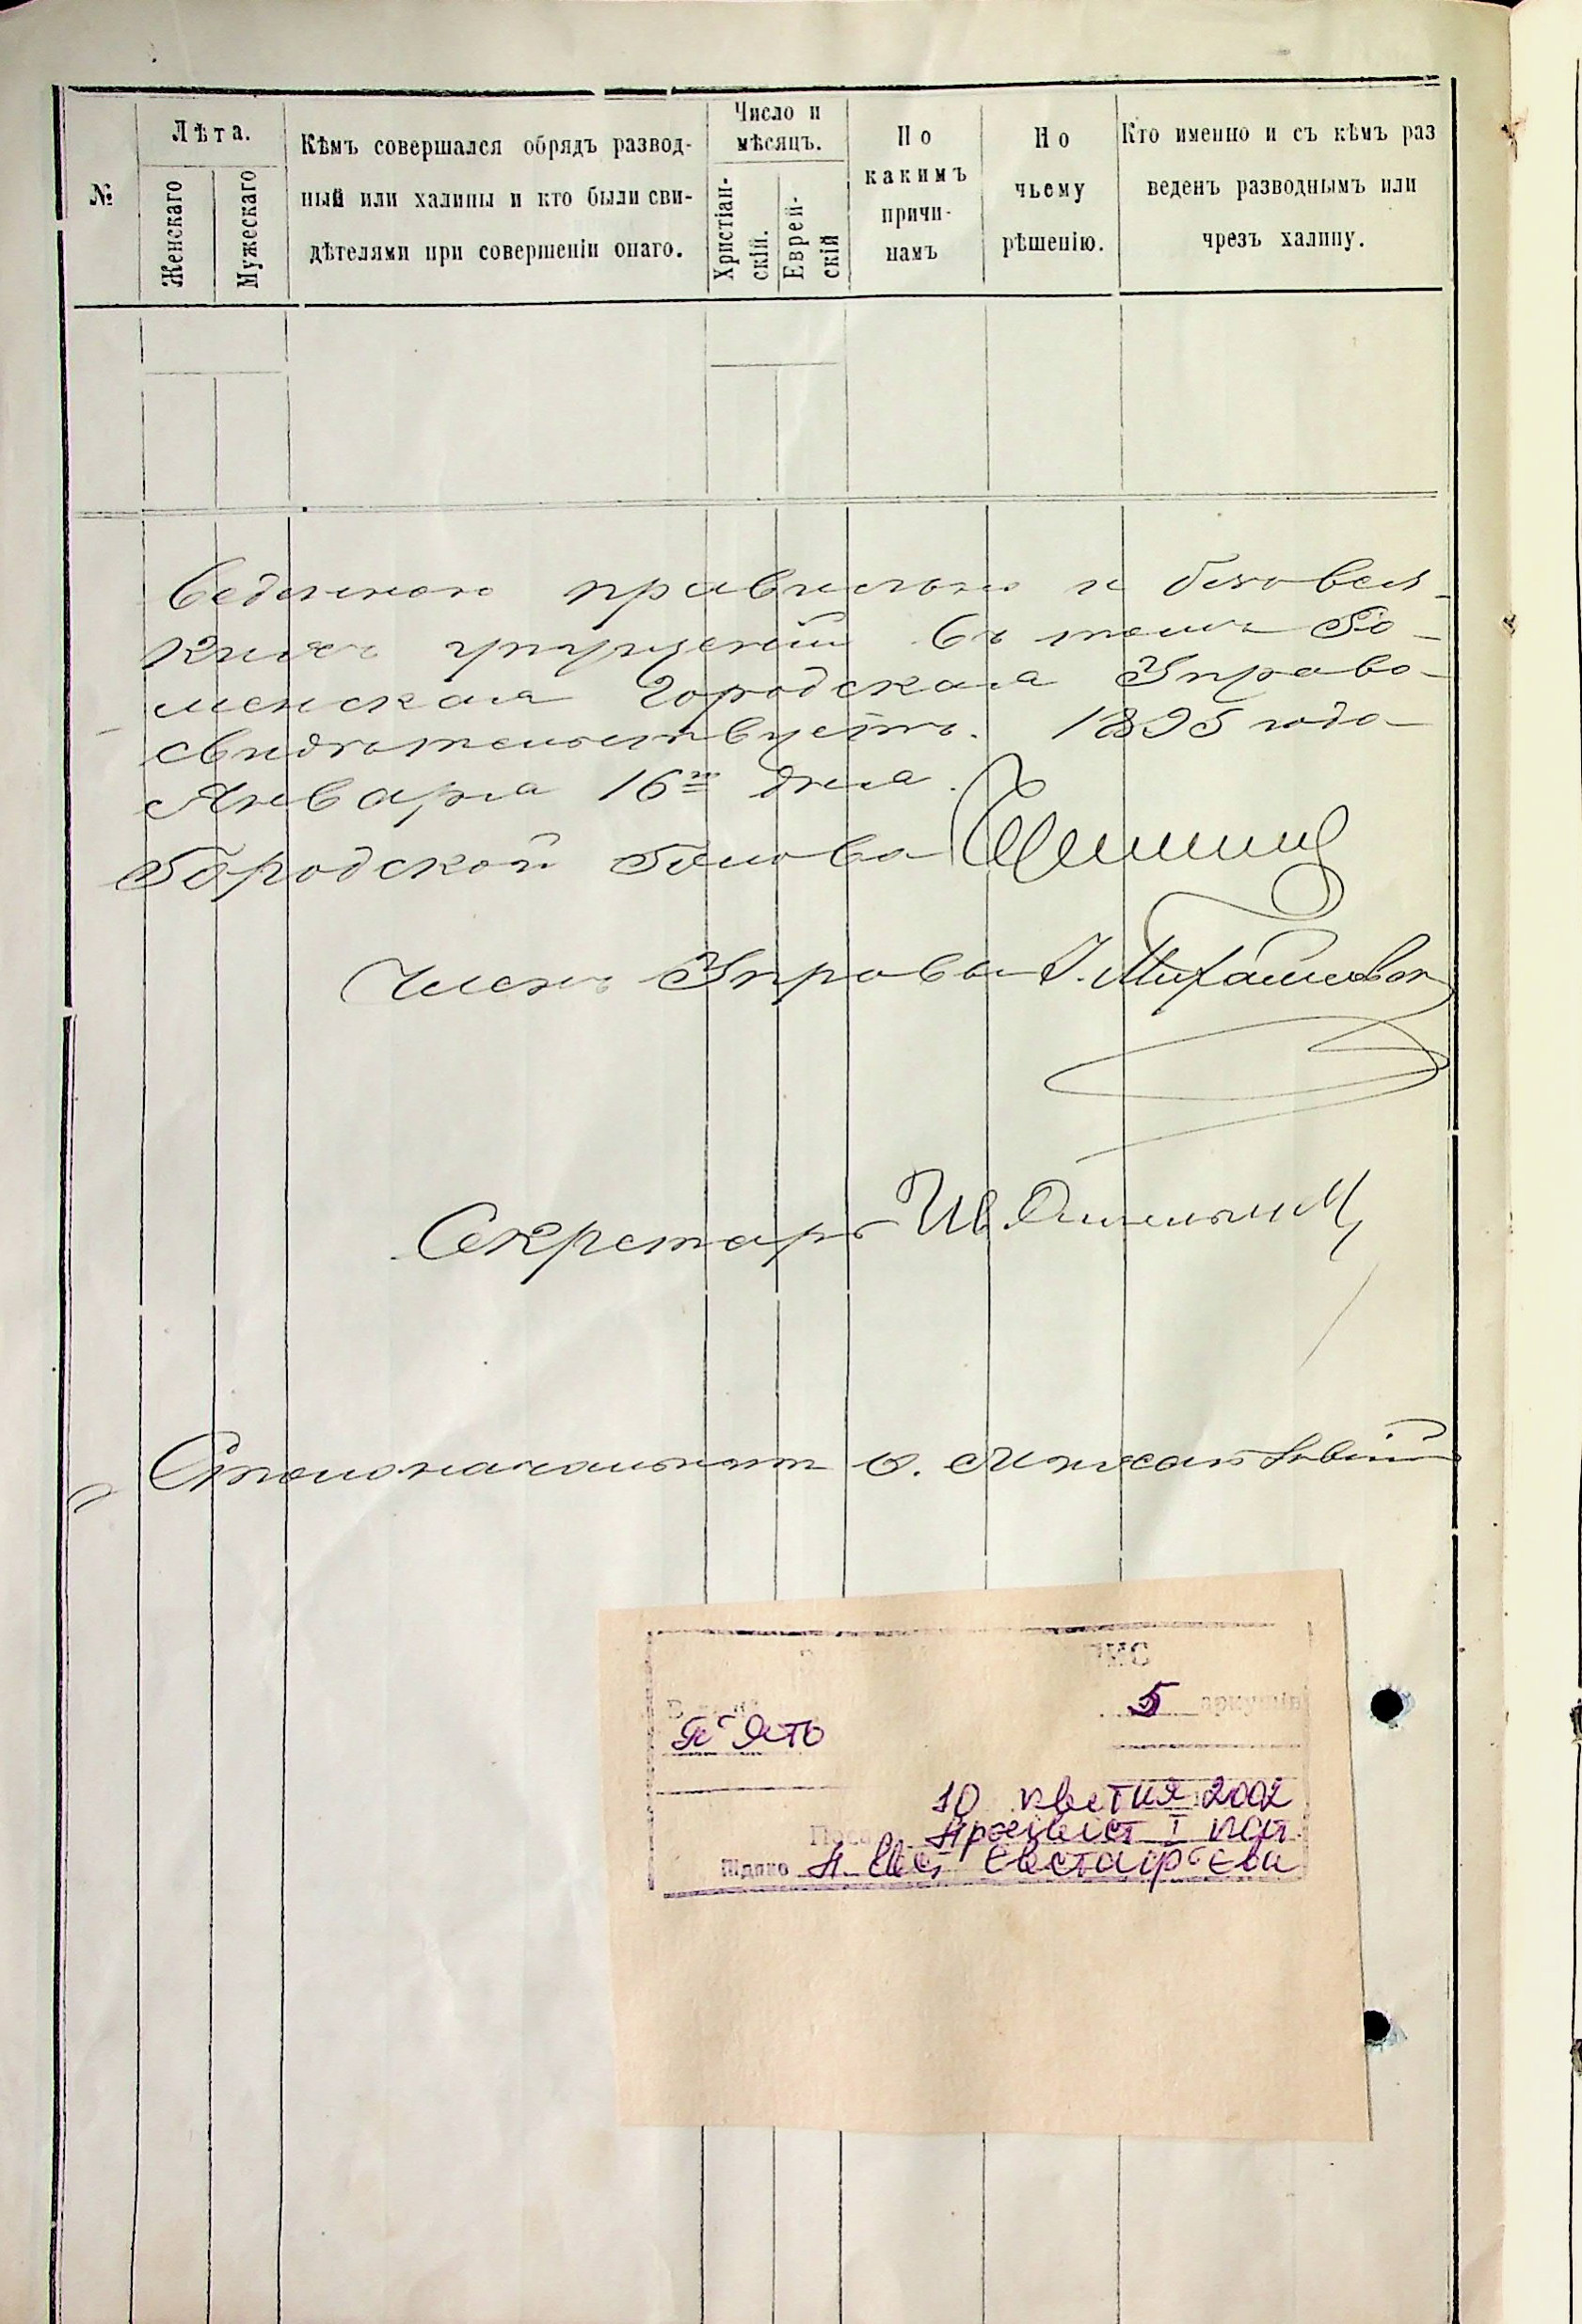 №
Лѣта.
Женскаго
Мужескаго
Кѣмъ совершался обрядъ развод-
ный или халицы и кто были сви-
дѣтелями при совершеніи онаго.
Число и
мѣсяцъ.
Христіан-
скій.
Еврей-
скій
По
какимъ
причи-
намъ
По
чьему
рѣшенію.
Кто именно и съ кѣмъ раз
веденъ разводнымъ или
чрезъ халицу.
веденною правильно и безовся-
кихъ упущеній въ томъ Ро-
менская Городская Управа
свидѣтельствуетъ. 1895 года
Января 16го дня.
Городской Голова
Членъ Управы
Секретарь Ив.
Столоначальникъ
5 аркушів
П'ять
10 квітня 2002
Посада Архівіст I кат.
Підпис Євстаф'єва